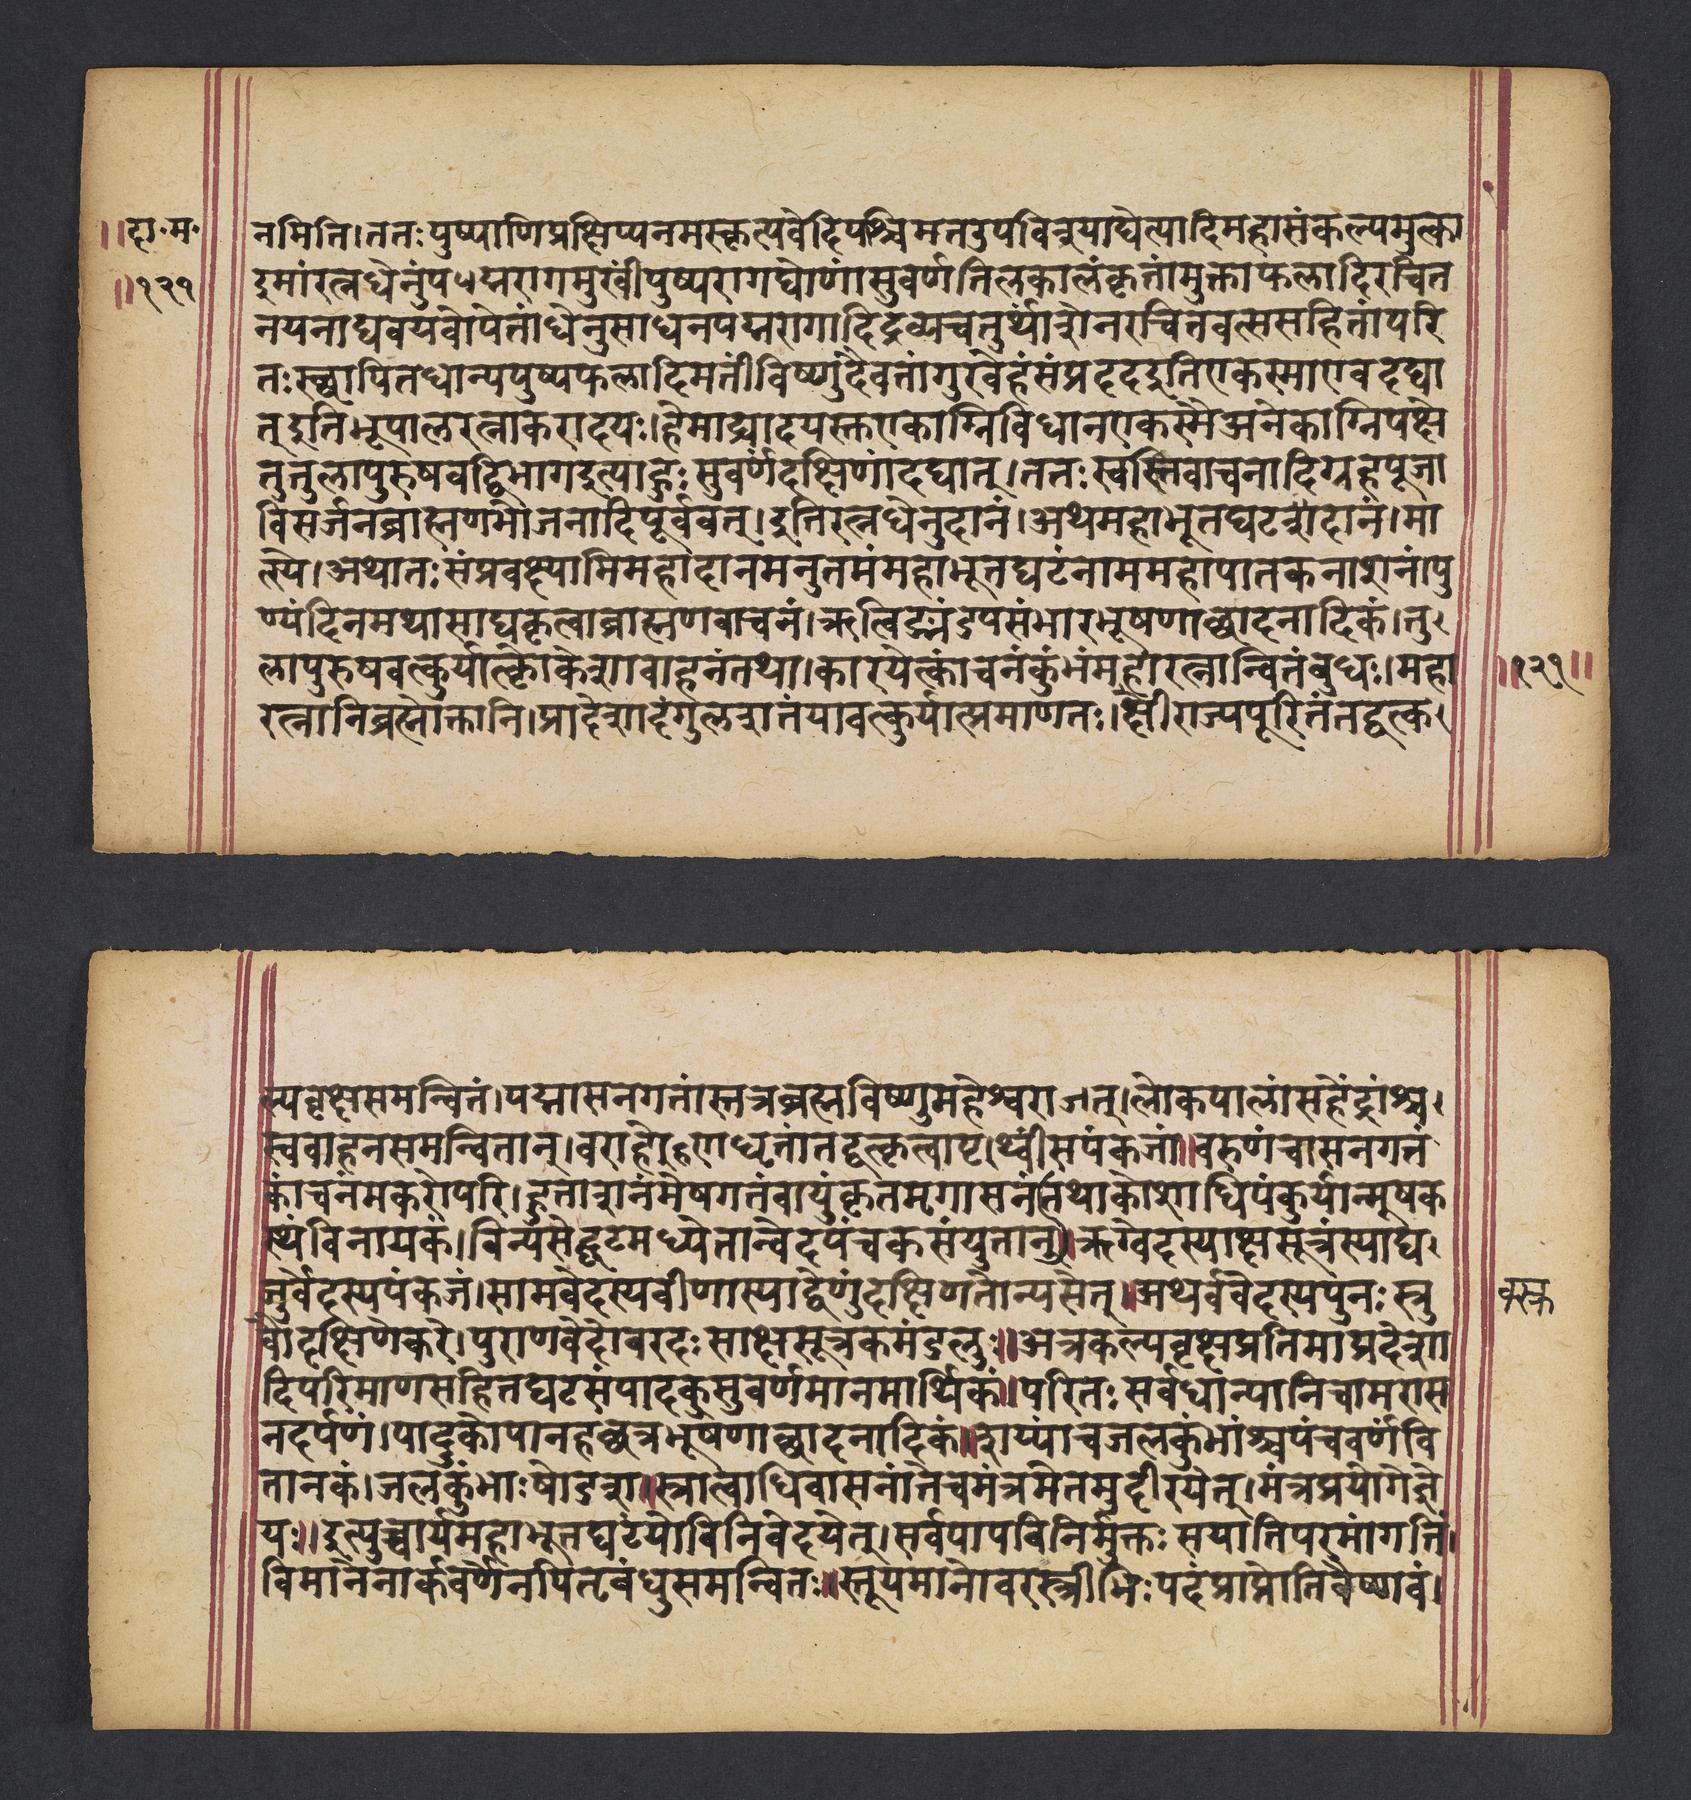 ॥दा॰म॰
॥१२१
नमिति।ततःपुष्पाणिप्रक्षिप्यनमस्कृत्यवेदिपश्चिमतउपविश्याद्येत्यादिमहासंकल्पमुत्का
इमांरत्नधेनुंपपद्मरागमुखींपुष्परागघोणांसुवर्णतिलकालंकृतांमुक्ताफलादिरचित
नयनाद्यवयवोपेतांधेनुसाधनपद्मरागादिद्रव्यचतुर्थांशेनरचितवत्ससहितांपरि
तःस्छापितधान्यपुष्पफलादिमतींविष्णुदैवतांगुरवेहंसंप्रददइतिएकस्माएवदद्या
त्इतिभूपालरत्नाकरादयः।हेमाद्र्यादयस्तएकाग्निविधानएकस्मैअनेकाग्निपक्षे
तुतुलापुरुषवद्विभागइत्याहुःसुवर्णदक्षिणांदद्यात्।ततःस्वस्तिवाचनादिग्रहपूजा
विसर्जनब्राह्मणभोजनादिपूर्ववत्।इतिरत्नधेनुदानं।अथमहाभूतघटदानं।मा
त्स्ये।अथातःसंप्रवक्ष्यामिमहादानमनुतमंमहाभूतघटंनाममहापातकनाशनं।पु
ण्यंदिनमथासाद्यकृत्वाब्राह्मणवाचनं।ऋत्विङ्मंडपसंभारभूषणाछादनादिकं।तु
लापुरुषवत्कुर्याल्लोकेशावाहनंतथा।कारयेत्कांचनंकुंभंमहारत्नान्वितंबुधः।महा
॥१२१॥
रत्नानिब्रह्मोक्तानि।प्रादेशादंगुलशतंयावत्कुर्यात्प्रमाणतः।क्षीराज्यपूरितंतद्वत्क
ल्पवृक्षसमन्वितं।पद्मासनगतांस्तत्रब्रह्मविष्णुमहेश्वरान्।लोकपालांसहेंद्रांश्च
स्ववाहनसमन्वितान्।वराहेणोधृतांतद्वत्कृत्वापृथ्वींसपंकजां॥वरुणंचासनगतं
कांचनंमकरोपरि।हुताशनंमेषगतंवायुंकृतमृगासनंतथाकोशाधिपंकुर्यान्मूषक
स्थंविनायकं।विन्यसेद्घटमध्येतान्वेदपंचकसंयुतान्॥ऋग्वेदस्याक्षसूत्रंस्याद्य
जुर्वेदस्यपंकजं।सामवेदस्यवीणास्याद्वेणुंदक्षिणतोन्यसेत्॥अथर्ववेदस्यपुनःस्त्रु
वोदक्षिणेकरे।पुराणवेदोवरदःसाक्षसूत्रकमंडलुः॥अत्रकल्पवृक्षप्रतिमाप्रदेशा
दिपरिमाणसहितघटसंपादकसुवर्णमानमार्थिकं॥परितःसर्वधान्यानिचामरास
नदर्पणं।पादुकोपानहछत्रभूषणाछादनादिकं॥शय्यांचजलकुंभांश्चपंचवर्णवि
तानकं।जलकुंभाःषोडश॥स्नात्वाधिवासनांतेचमंत्रमेतमुदीरयेत्।मंत्रप्रयोगेज्ञे
यः॥इत्युच्चार्यमहाभूतघटंयोविनिवेदयेत्।सर्वपापविनिर्मुक्तःसयातिपरमांगतिं।
विमानेनार्कवर्णेनपितृबंधुसमन्वितः॥स्तूयमानोवरस्त्रीभिःपदंप्राप्नोतिवैष्णवं।